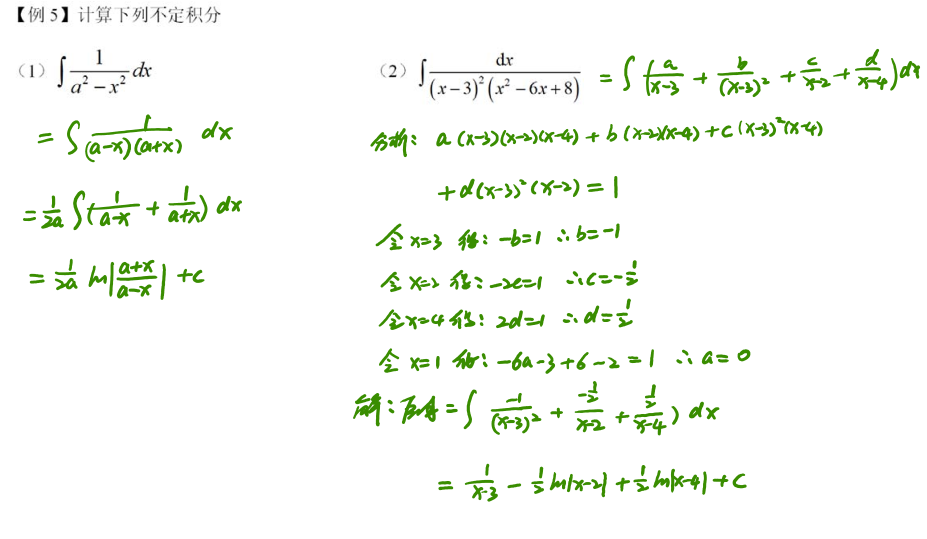 【例 5】计算下列不定积分
（1）∫ 1/(a² − x²) dx
= ∫ 1/((a-x)(a+x)) dx
= 1/2a ∫ (1/(a-x) + 1/(a+x)) dx
= 1/2a ln|(a+x)/(a-x)| + c
（2）∫ dx/((x−3)²(x²−6x+8)) = ∫ (a/(x-3) + b/(x-3)² + c/(x-2) + d/(x-4)) dx
分析: a(x-3)(x-2)(x-4) + b(x-2)(x-4) + c(x-3)²(x-4)
+ d(x-3)²(x-2) = 1
令 x=3 得: -b=1 ∴b=-1
令 x=2 得: -2c=1 ∴c=-1/2
令 x=4 得: 2d=1 ∴d=1/2
令 x=1 得: -6a-3+6-2=1 ∴a=0
解: 原式 = ∫ -1/(x-3)² + (-1/2)/(x-2) + (1/2)/(x-4) ) dx
= 1/(x-3) - 1/2 ln|x-2| + 1/2 ln|x-4| + c